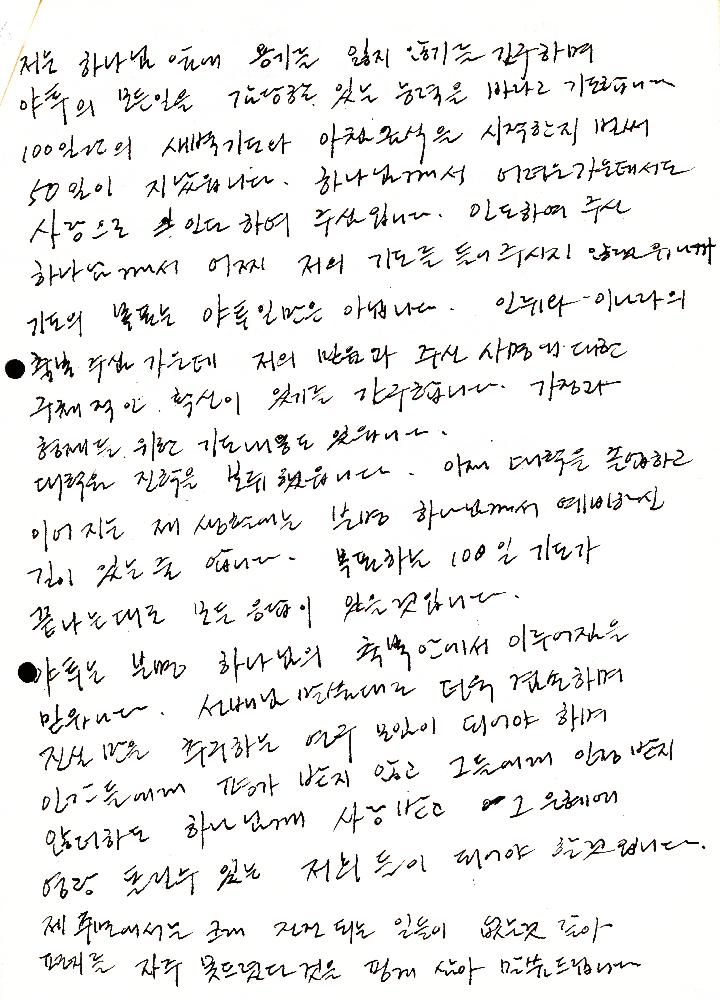 저는 하나님 앞에 용기를 잃지 않기를 간구하며
야특의 모든일을 감당할수 있는 능력을 바라고 기도합니다
100일간의 새벽기도와 아침금식을 시작한지 벌써
50일이 지났읍니다. 하나님께서 어려운가운데서도
사랑으로 인도하여 주심입니다. 인도하여 주신
하나님께서 어찌 저의 기도를 들어주시지 않겠읍니까
기도의 목표는 야특일만은 아닙니다. 인류와 이나라의
축복 주심 가운데 저의 믿음과 주신 사명에 대한
구체적인 확신이 있기를 간구합니다. 가정과
형제를 위한 기도내용도 있읍니다.
대학원 진학을 보류했읍니다. 이제 대학을 졸업하고
이어지는 제 생활에는 분명 하나님께서 예비하신
길이 있는줄 압니다. 목표하는 100일 기도가
끝나는대로 모든 응답이 있을것입니다.
야특는 분명 하나님의 축복안에서 이루어짐을
믿읍니다. 선배님 말씀대로 더욱 겸손하며
진실만을 추구하는 연구 모임이 되어야 하며
인간들에게 평가 받지 않고 그들에게 인정받지
않더라도 하나님께 사랑받고 그 은혜에
영광 돌릴수 있는 저희들이 되어야 할것입니다.
제 주변에서는 크게 진전되는 일들이 없는것 같아
편지를 자주 못드렸다는것을 핑계 삼아 말씀드립니다